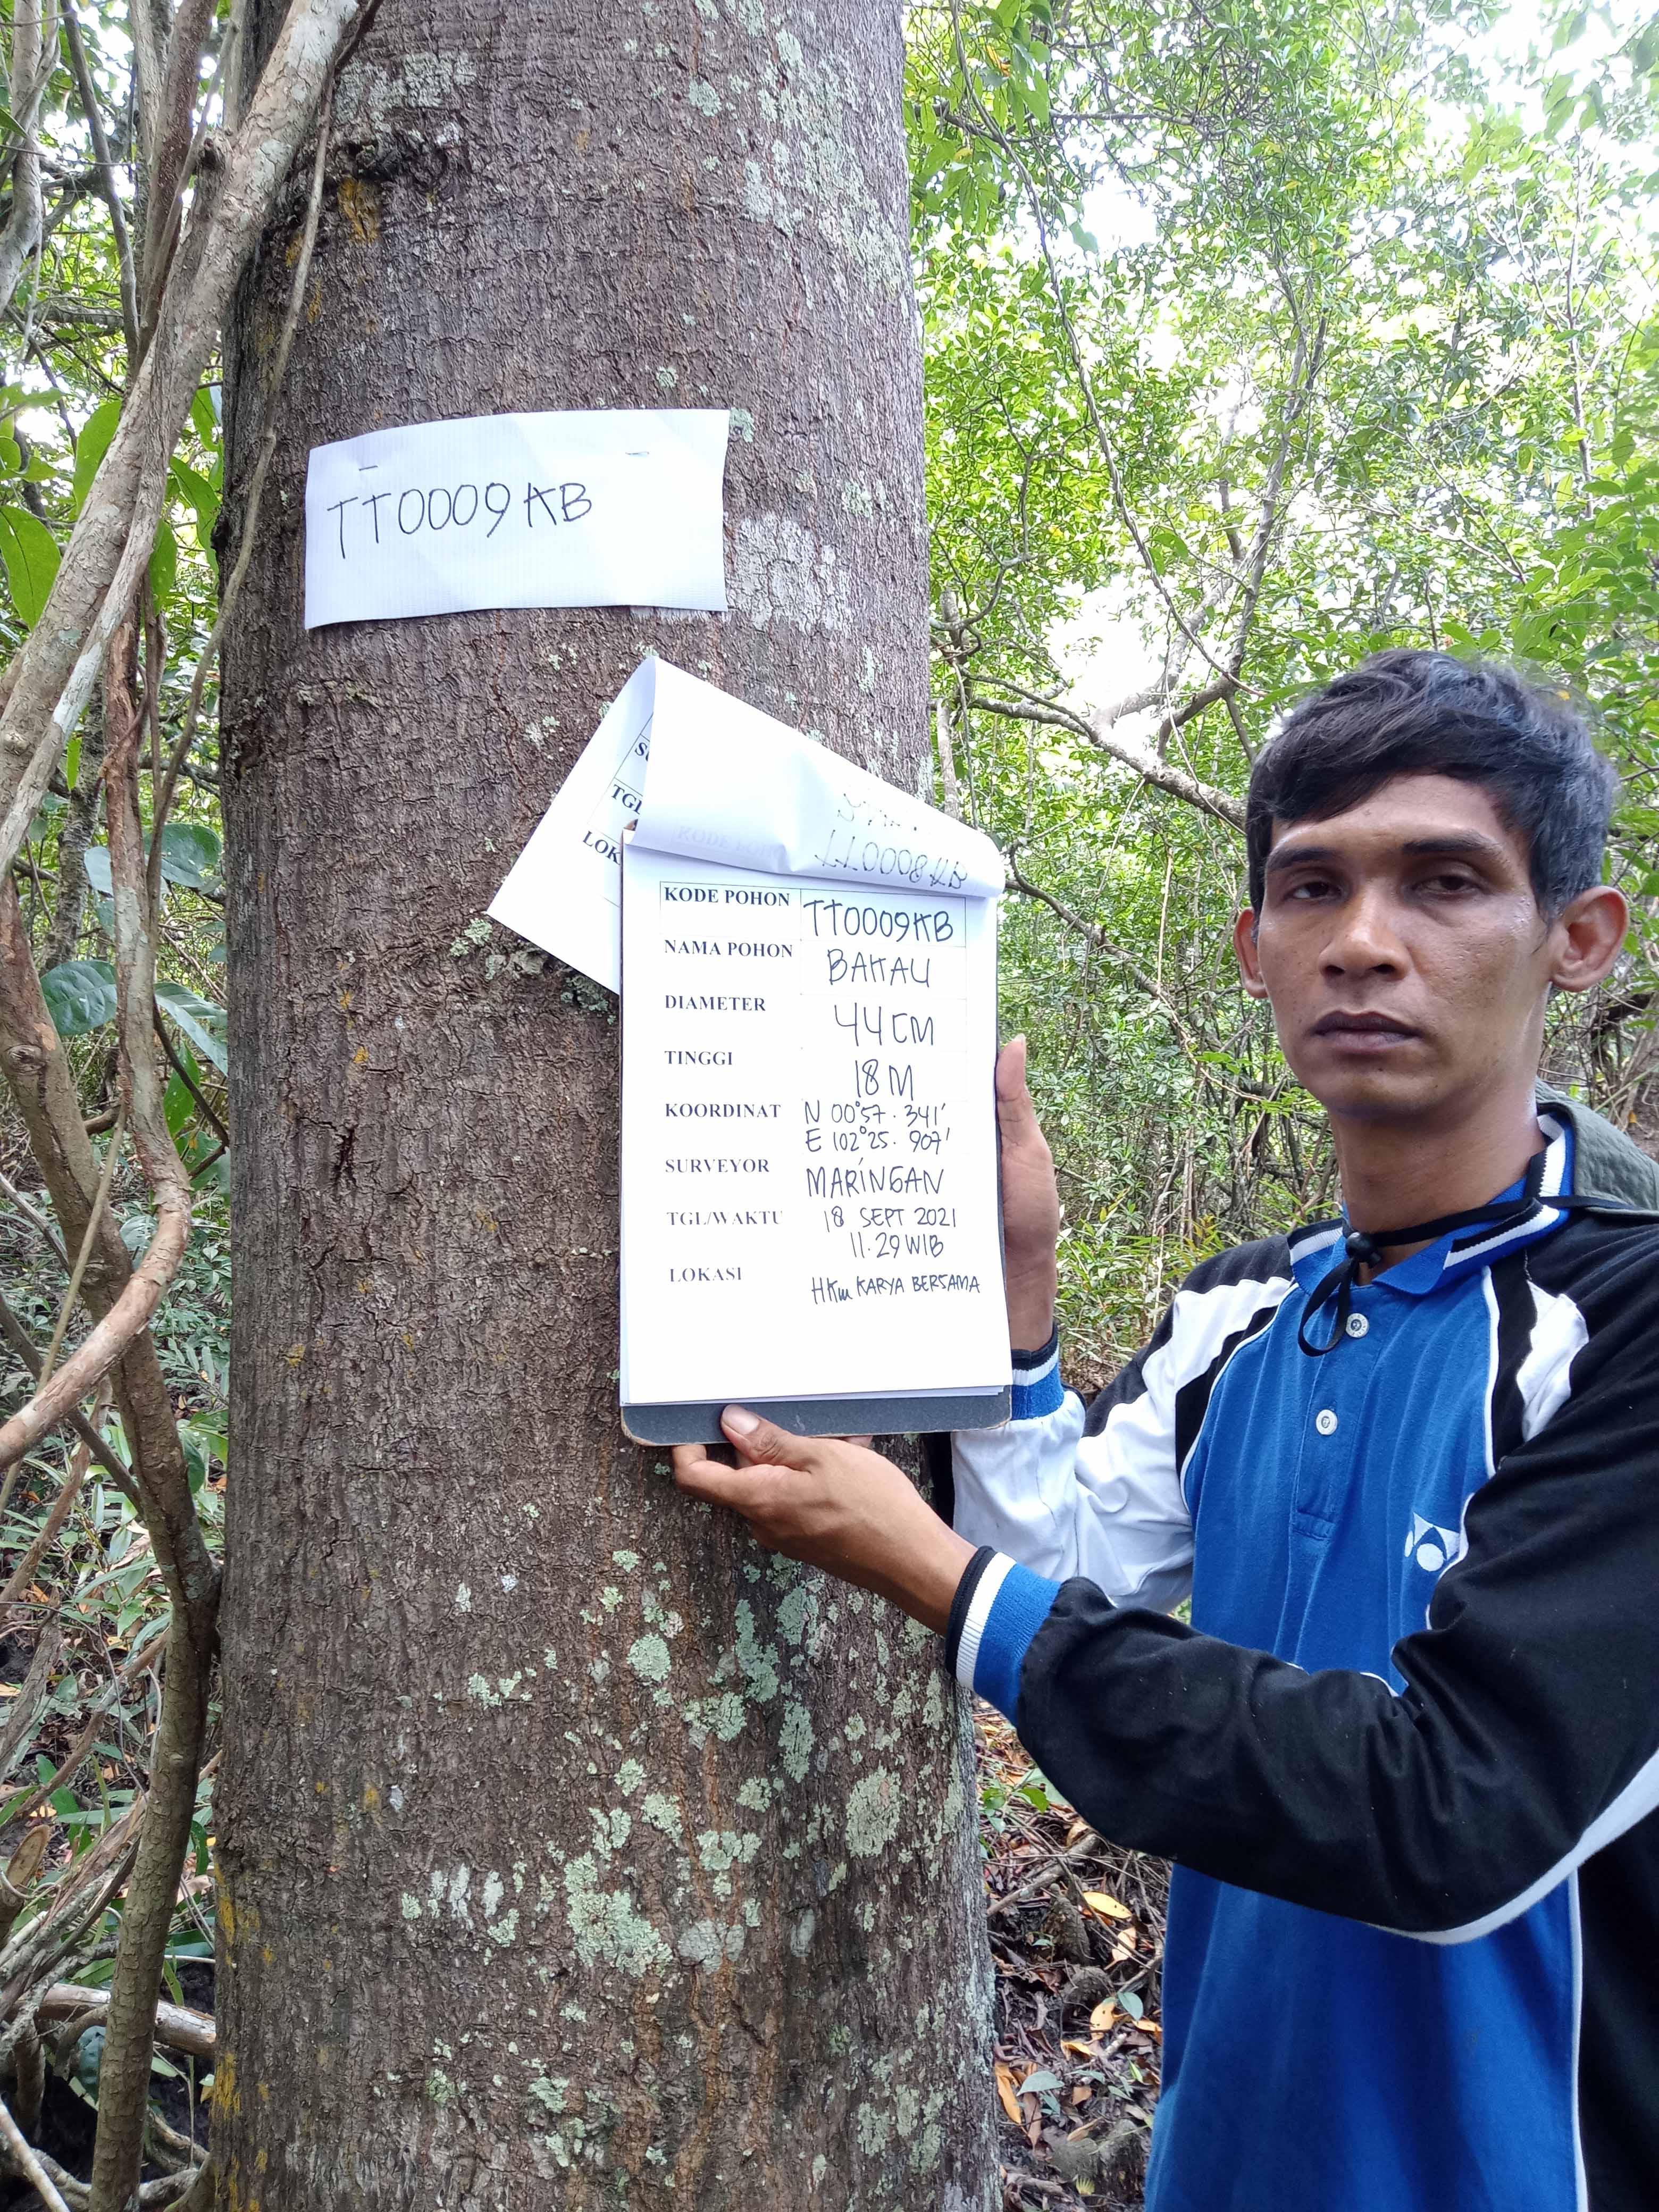 TT0009KB
SU
TGL
LOK
TT0008KB
KODE POHON TT0009KB
NAMA POHON BAKAU
DIAMETER 44 CM
TINGGI 18 M
KOORDINAT N 00°57.341'
E 102°25.907'
SURVEYOR MARINGAN
TGL/WAKTU 18 SEPT 2021
11.29 WIB
LOKASI HKm KARYA BERSAMA